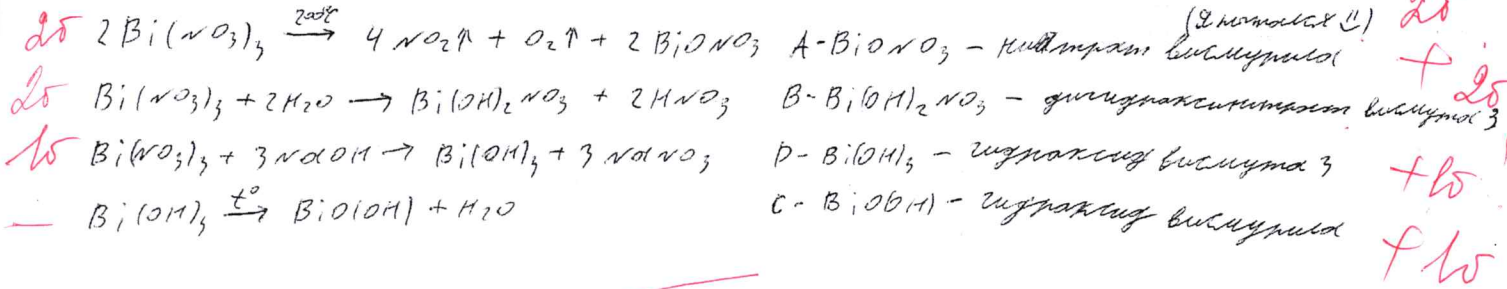 (Я пытался :))
2б 2Bi(NO3)3 200°C→ 4NO2↑ + O2↑ + 2BiONO3 A - BiONO3 - нитрат висмутила + 2б
2б Bi(NO3)3 + 2H2O → Bi(OH)2NO3 + 2HNO3 B - Bi(OH)2NO3 - дигидроксинитрат висмута 3 2б
1б Bi(NO3)3 + 3NaOH → Bi(OH)3 + 3NaNO3 D - Bi(OH)3 - гидроксид висмута 3 +1б
— Bi(OH)3 t°→ BiO(OH) + H2O C - BiO(OH) - гидроксид висмутила +1б